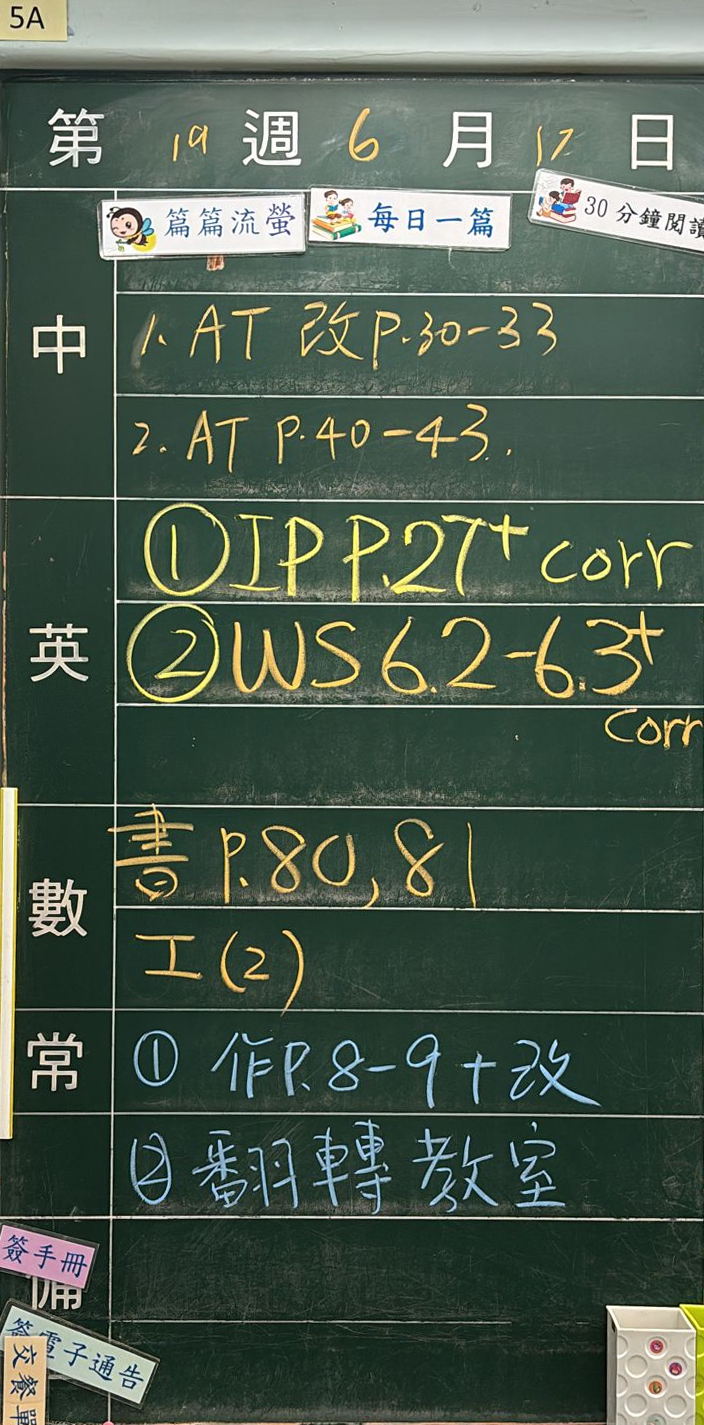 5A
第 19 週 6 月 17 日
篇篇流螢 每日一篇 30分鐘閱讀
中
1. AT 改P.30-33
2. AT P.40-43.
英
①IP P.27+ corr
②WS 6.2-6.3+
corr
數
書 P.80,81
工(2)
常
① 作P.8-9+改
② 翻轉教室
簽手冊
備
簽電子通告
交餐單